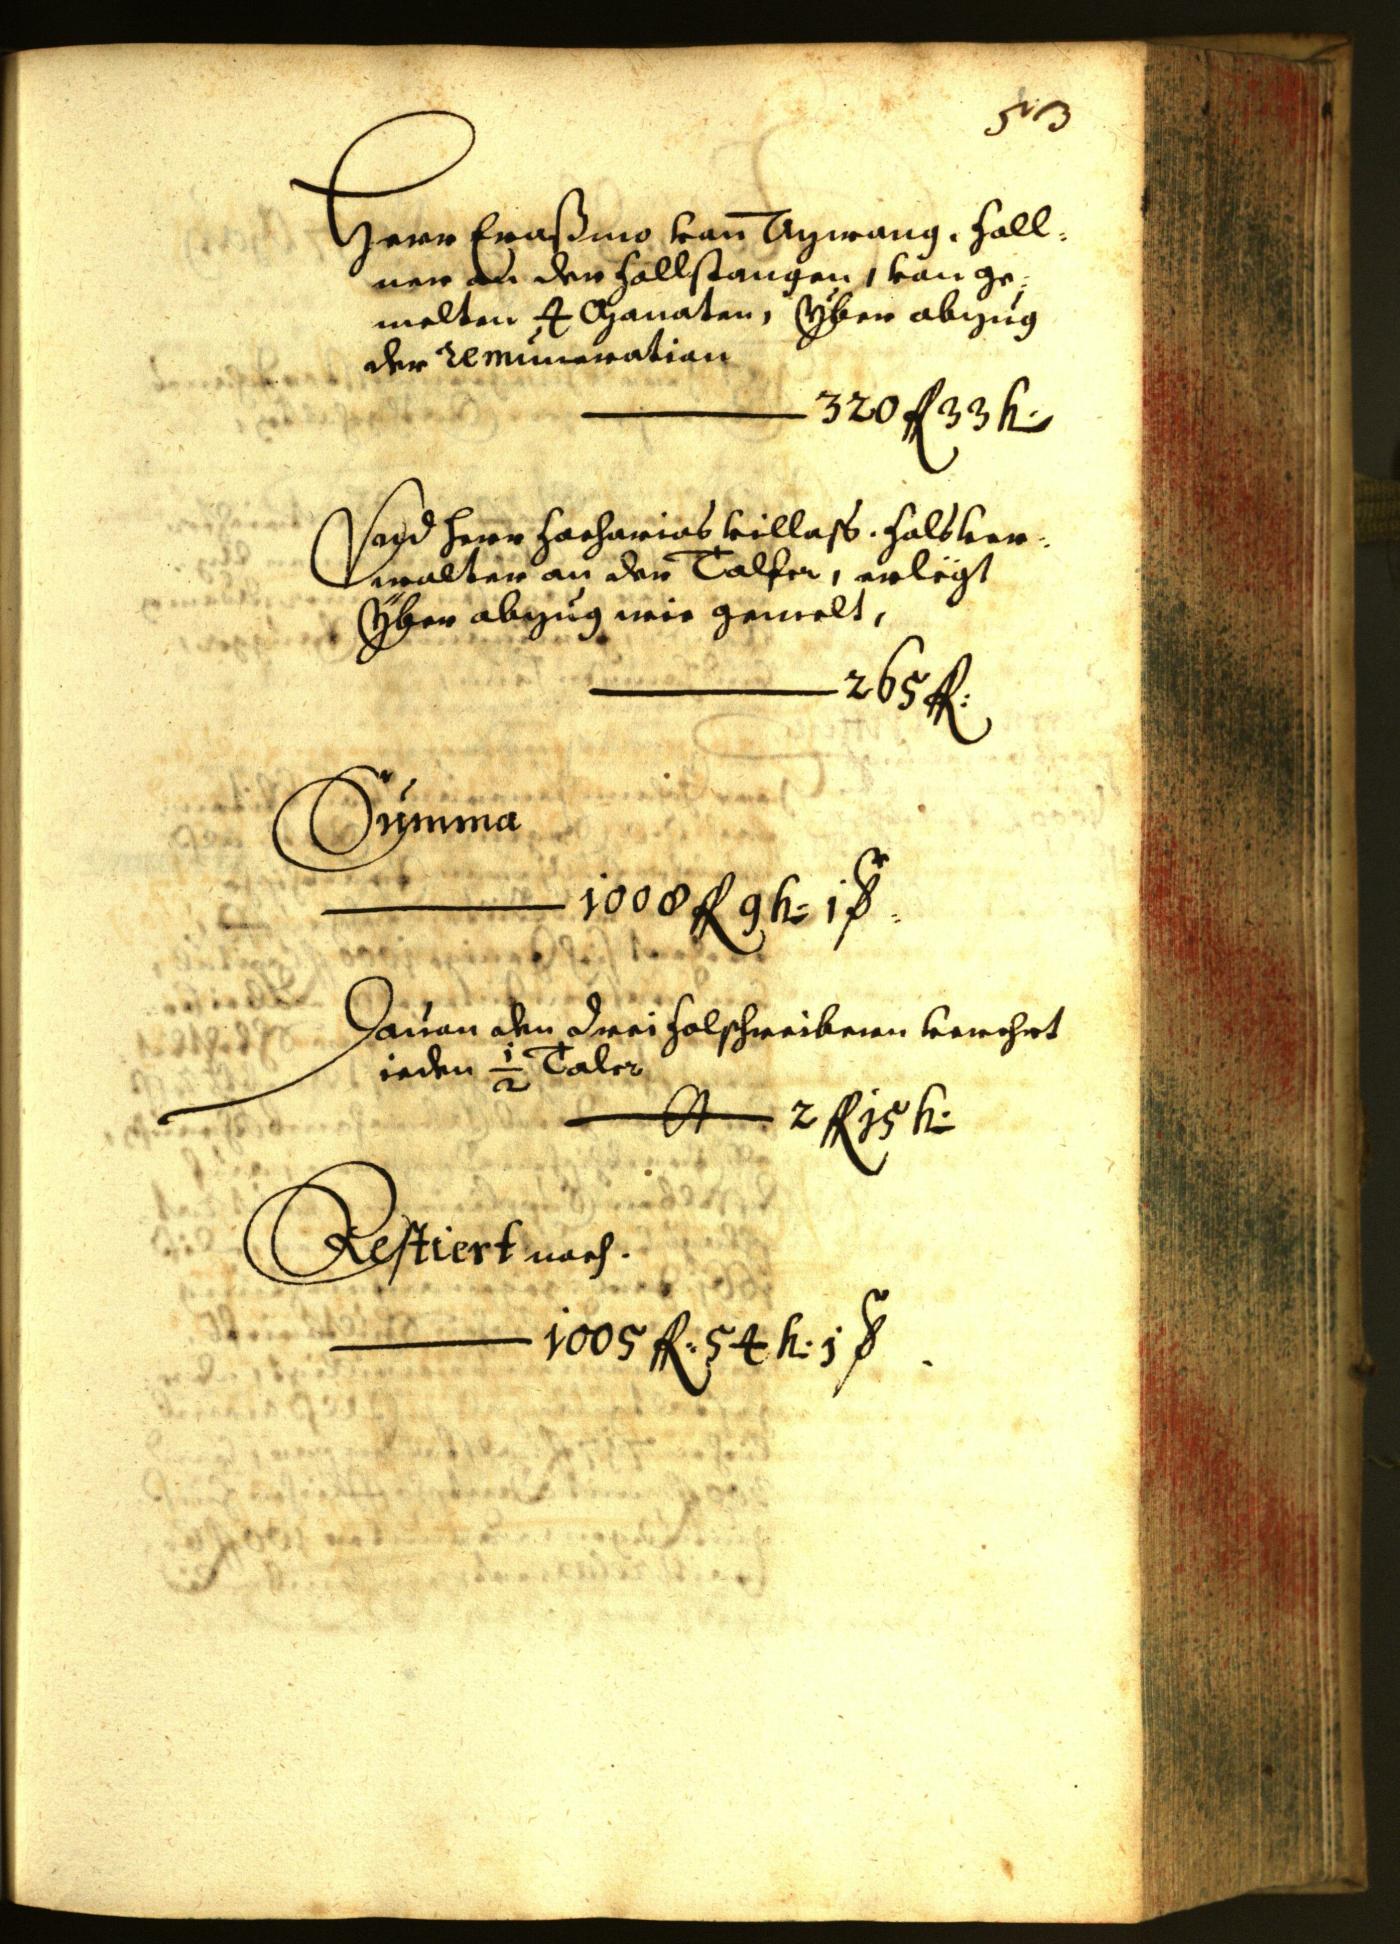 513
Herr Eraßmo von Aywang. Zoll=
ner an der Zollstangen, von ge=
melten 4 Monaten, Yber abzug
der remuneration
320 fl 33 k:
Vnd Herr Zacharias Killaß. Zolsver=
walter an der Talfer, erlegt
Yber abzug wie gemelt,
265 fl:
Summa
1008 fl 9 k: 1 ₰
Dauon den drei Zolschreibern verehrt
ieden 1/2 Taler
2 fl 15 k:
Restiert noch.
1005 fl: 54 k: 1 ₰